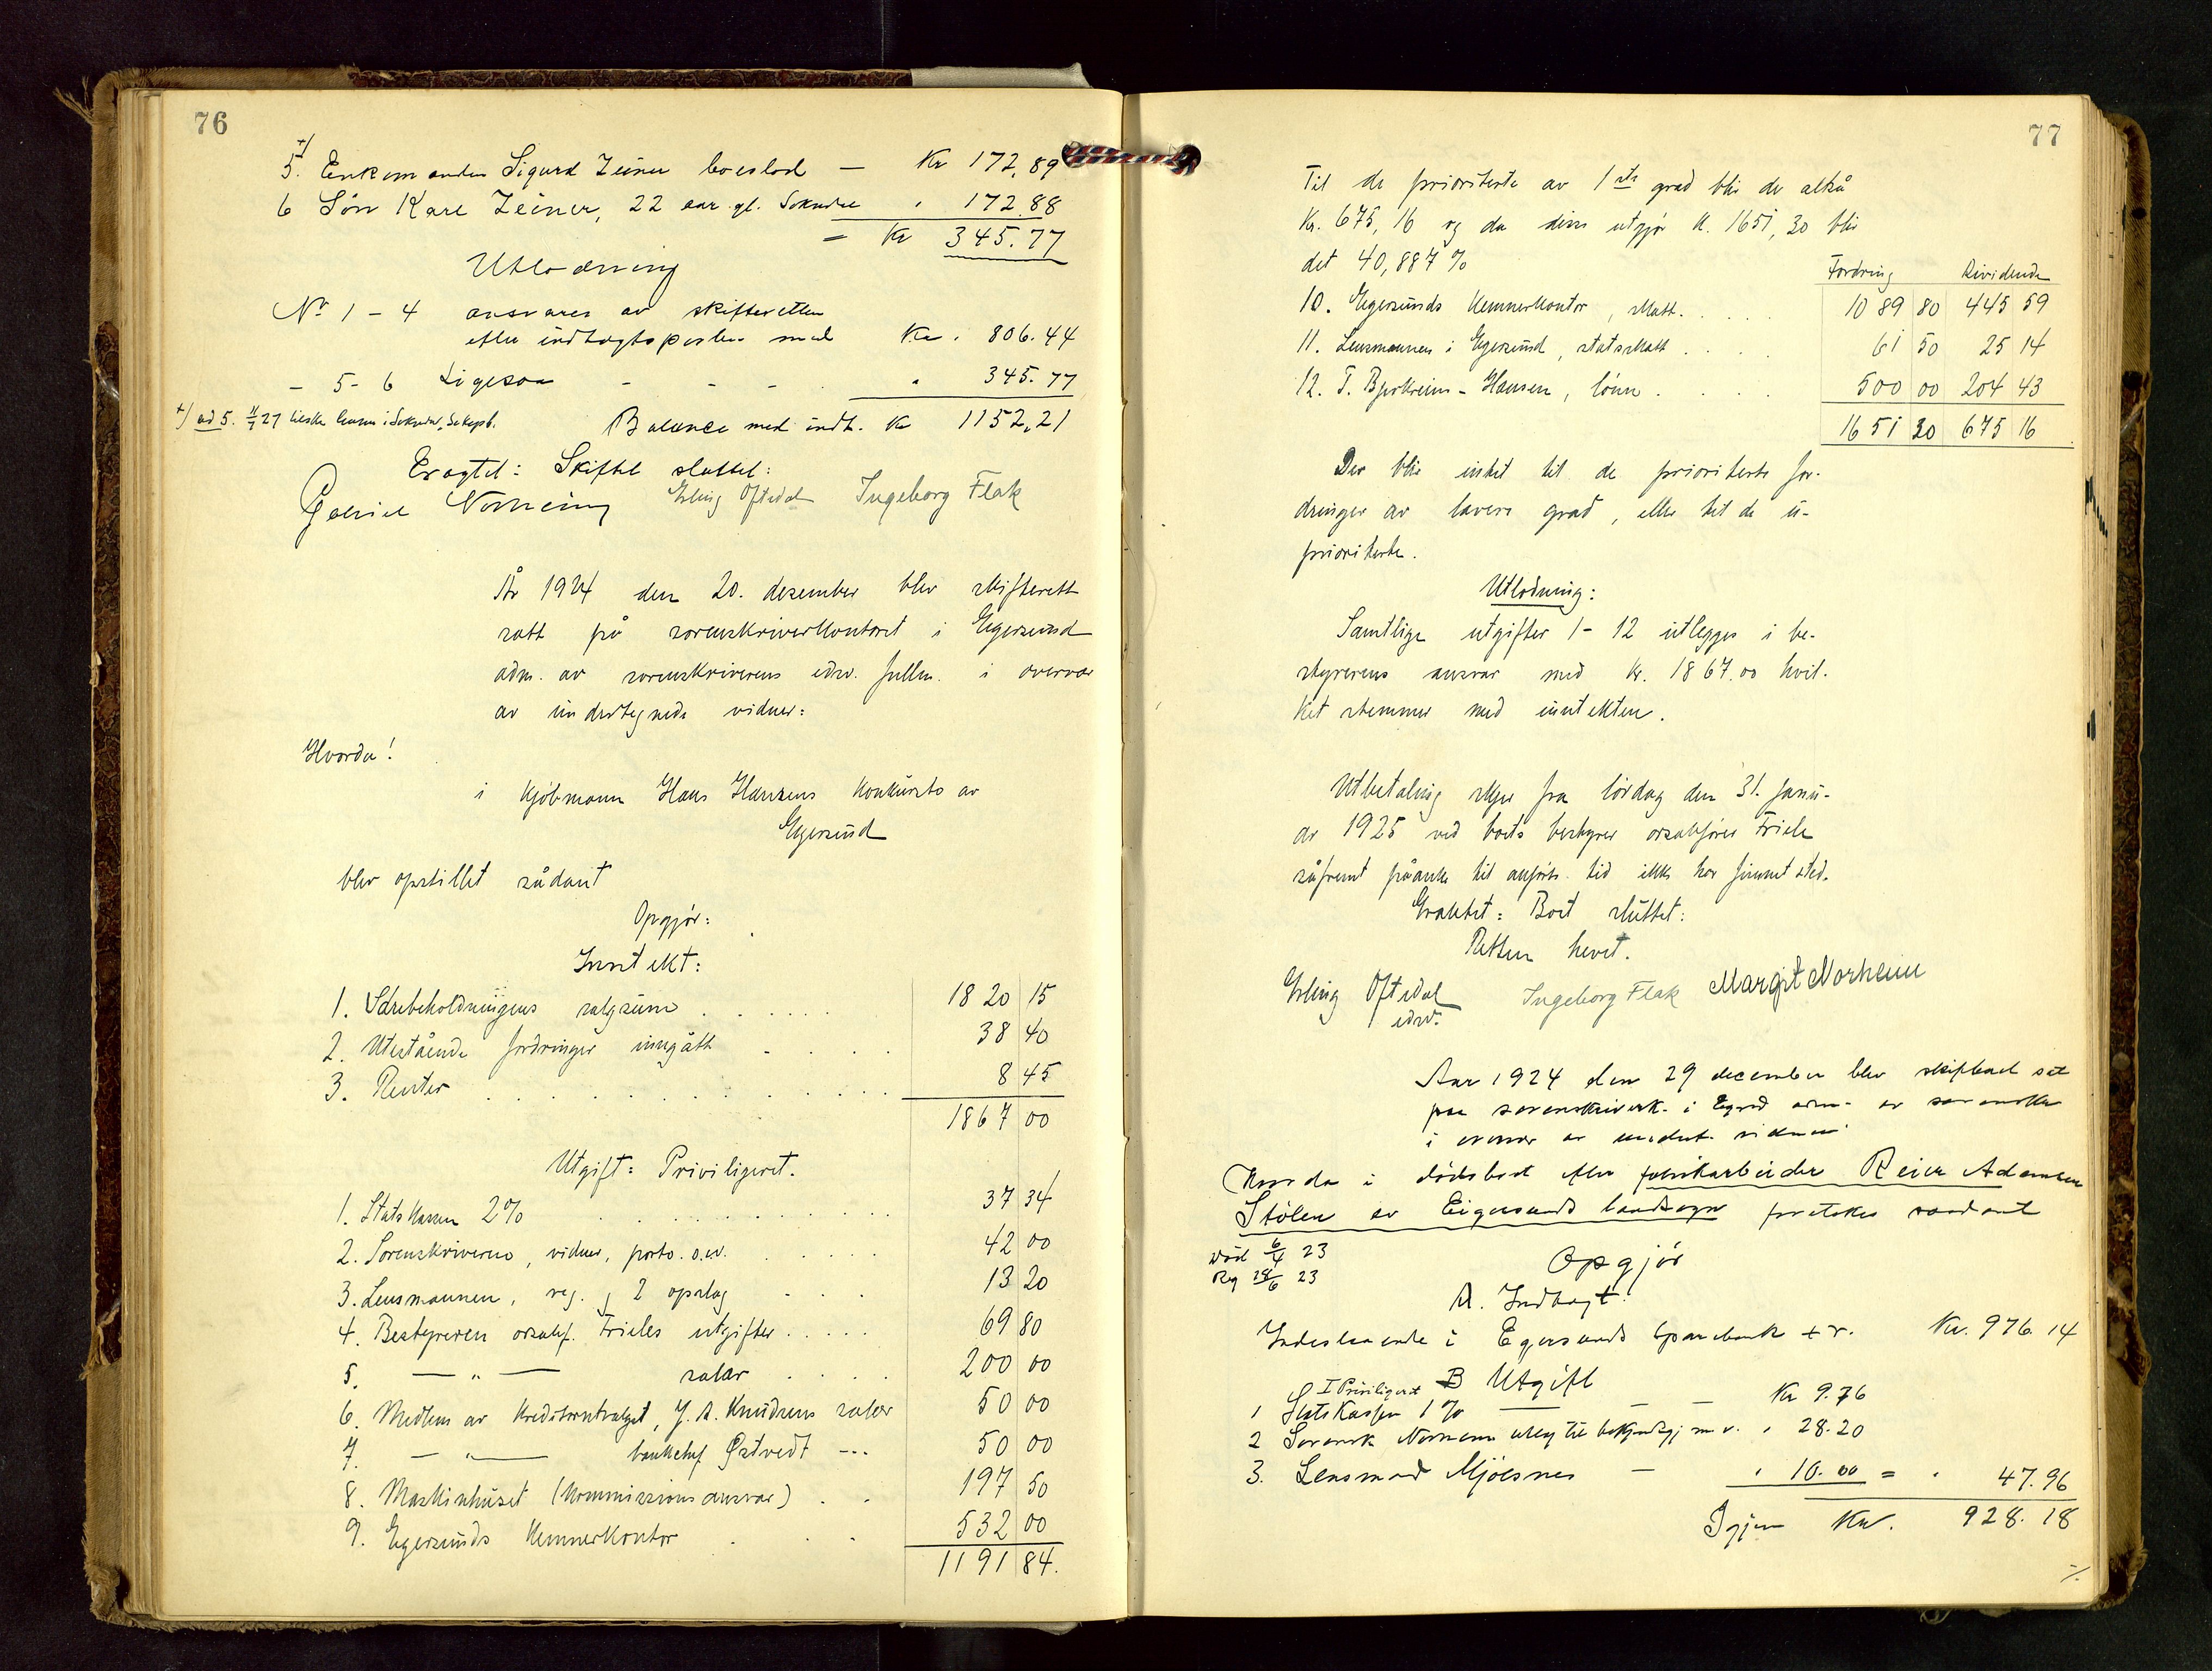 76
+/
5. Enkemanden Sigurd Zeiner boeslod — Kr 172,89
6 Søn Karl Zeiner, 22 aar gl. Sokndal " 172.88
= Kr 345.77
Utlodning
No 1 - 4 ansvares av skifteretten
efter indtægtsposten med Kr. 806.44
- 5 - 6 Ligesaa - - - " 345.77
+/ ad 5.
Balance med indt. Kr 1152,21
Eragtet: Skiftet sluttet:
Gabriel Norheim Erling Oftedal Ingeborg Flak
År 1924 den 20. desember blev skifterett
satt på sorenskriverkontoret i Egersund
adm. av sorenskriverens edsv. fullm. i overvær
av undertegnede vidner:
Hvorda!
i kjøbmann Hans Hansens konkursbo av
Egersund
blev opstillet sådant
Opgjør:
Inntekt:
1. Varebeholdningens salgssum . . . . . 1820 15
2. Utestående fordringer inngått . . . . 38 40
3. Renter . . . . . . . . . 8 45
1867 00
Utgift: Priviligeret.
1. Statskassen 2% . . . . . . . 37 34
2. Sorenskriveren, vidner, porto. o.s.v. . . . . 42 00
3. Lensmannen, reg. og 2 opslag . . . 13 20
4. Bestyreren orsakf. Frieles utgifter . . . . . 69 80
5. — " — salær . . . . 200 00
6. Medlem av kreditorutvalget, J. A. Knudsens salær 50 00
7. — " — banksjef Østvedt --- 50 00
8. Maskinhuset (kommissionsansvar) . . 197 50
9. Egersunds kemnerkontor . . 532 00
1191 84.
77
Til de prioriterte av 1ste grad blir der altså
Kr. 675,16 og da disse utgjør K. 1651,30 blir
det 40,887 %
Fordring Dividende
10. Egersunds kemnerkontor, skatt. . . . . 1089 80 445 59
11. Lensmannen i Egersund, statsskatt . . . . 61 50 25 14
12. T. Bjerkreim-Hansen, lønn . . . . 500 00 204 43
1651 30 675 16
Der blir intet til de prioriterte for-
dringer av lavere grad, eller til de u-
prioriterte.
Utlodning:
Samtlige utgifter 1 - 12 utlegges i be-
styrerens ansvar med kr. 1867.00 hvil-
ket stemmer med inntekten.
Utbetaling skjer fra lørdag den 31. janu-
ar 1925 ved boets bestyrer orsakfører Friele
såfremt påanke til anførte tid ikke har funnet sted.
Eraktet: Boet sluttet:
Retten hevet.
Erling Oftedal Ingeborg Flak Margit Norheim
edsv.
Aar 1924 den 29 december blev skifteret sat
paa sorenskriverk. i Egersd adm. av sorenskr
i overvær av undert. vidner
Hvorda i dødsboet efter fabrikarbeider Reier Adamsen
Stølen av Eigersunds landsogn foretokes saadant
Død 6/4 23
Reg 28/6 23
Opgjør
A. Indtægt:
Indestaaende i Egersunds Sparebank + r. Kr. 976.14
B Utgift
I Priviligeret
1 Statskassen 1% — — — Kr 9.76
2 Sorensk Norheim utlæg til bekjendtgj m. v. " 28.20
3. Lensmand Mjølsnes — " 10.00 = " 47.96
Igjen Kr. 928.18